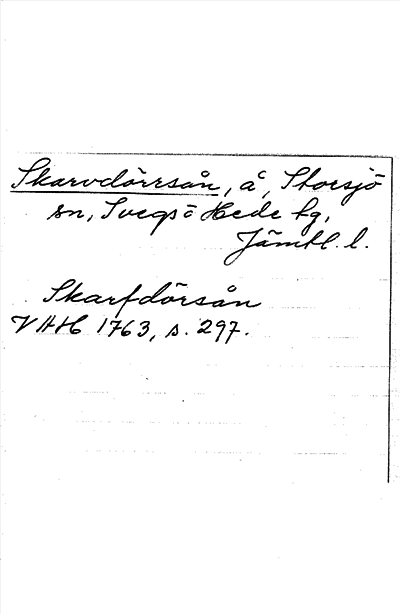 Skarvdörrsån, å, Storsjö
sn, Svegs o Hede tg,
Jämtl. l.
Skarfdörsån
VHH 1763, s. 297.